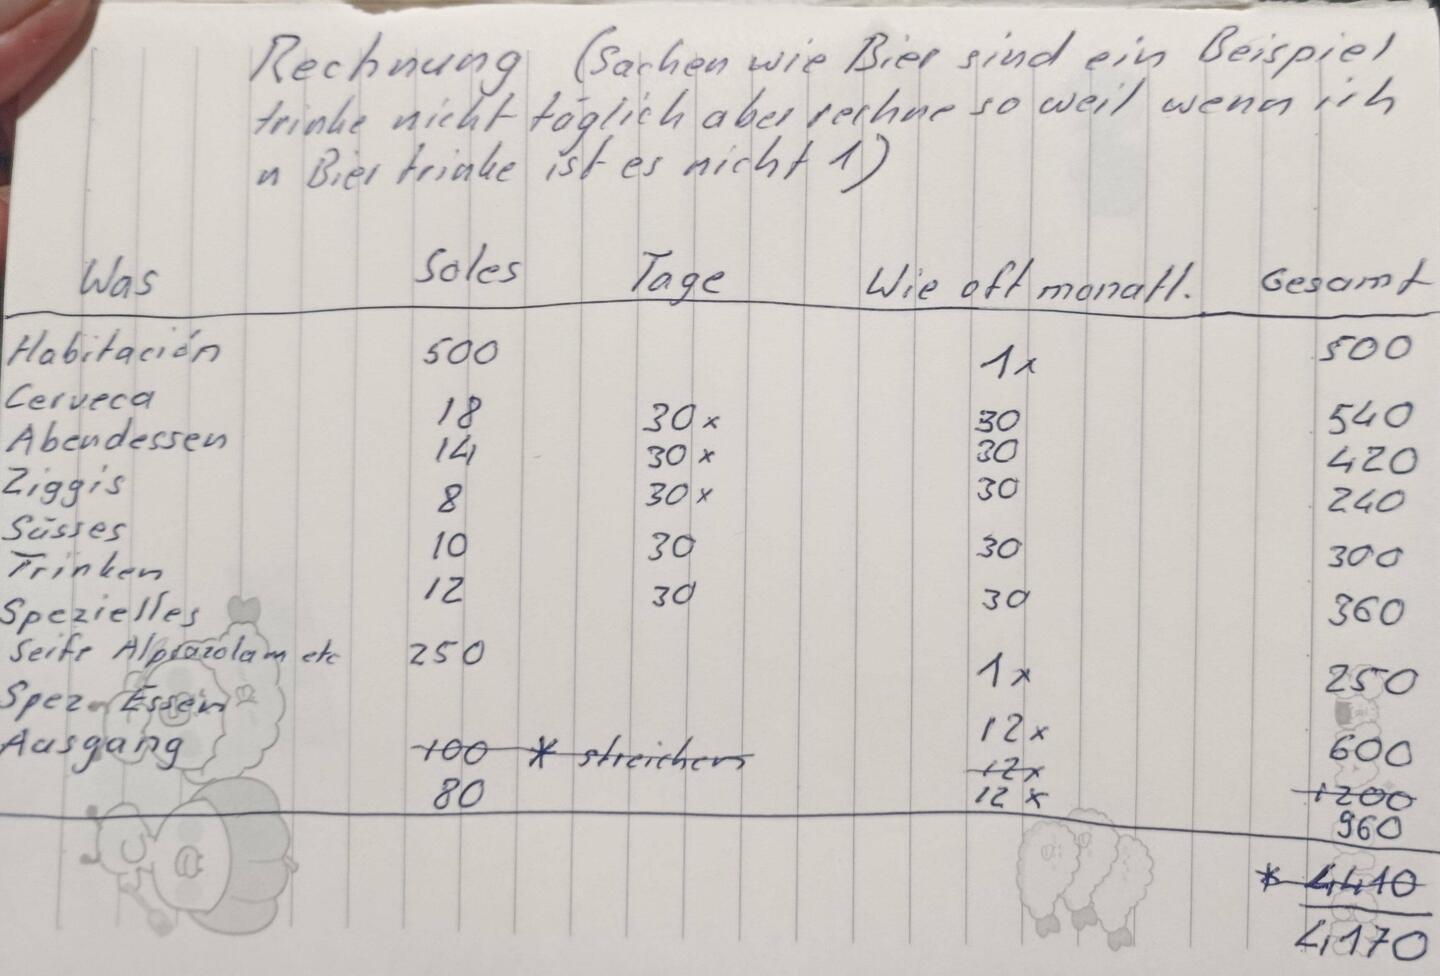 Rechnung (Sachen wie Bier sind ein Beispiel
trinke nicht täglich aber rechne so weil wenn ich
n Bier trinke ist es nicht 1)
Was Soles Tage Wie oft monatl. Gesamt
Habitación 500 1x 500
Cerveca 18 30x 30 540
Abendessen 14 30x 30 420
Ziggis 8 30x 30 240
Süsses 10 30 30 300
Trinken 12 30 30 360
Spezielles
Seife Alprazolam etc 250 1x 250
Spez. Essen 12x 600
Ausgang 100 * streichen 12x 1200
80 12x 960
* 4410
4170